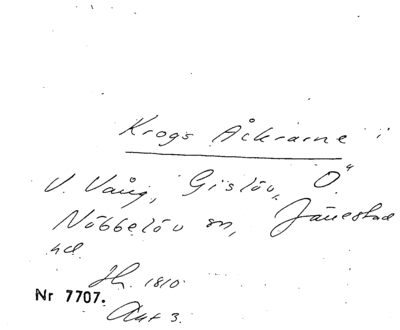 Krogs Åkrarne i
V. Vång, Gislöv, Ö.
Nöbbelöv sn, Järrestad
hd.
Jh. 1810.
Nr 7707.
Akt 3.